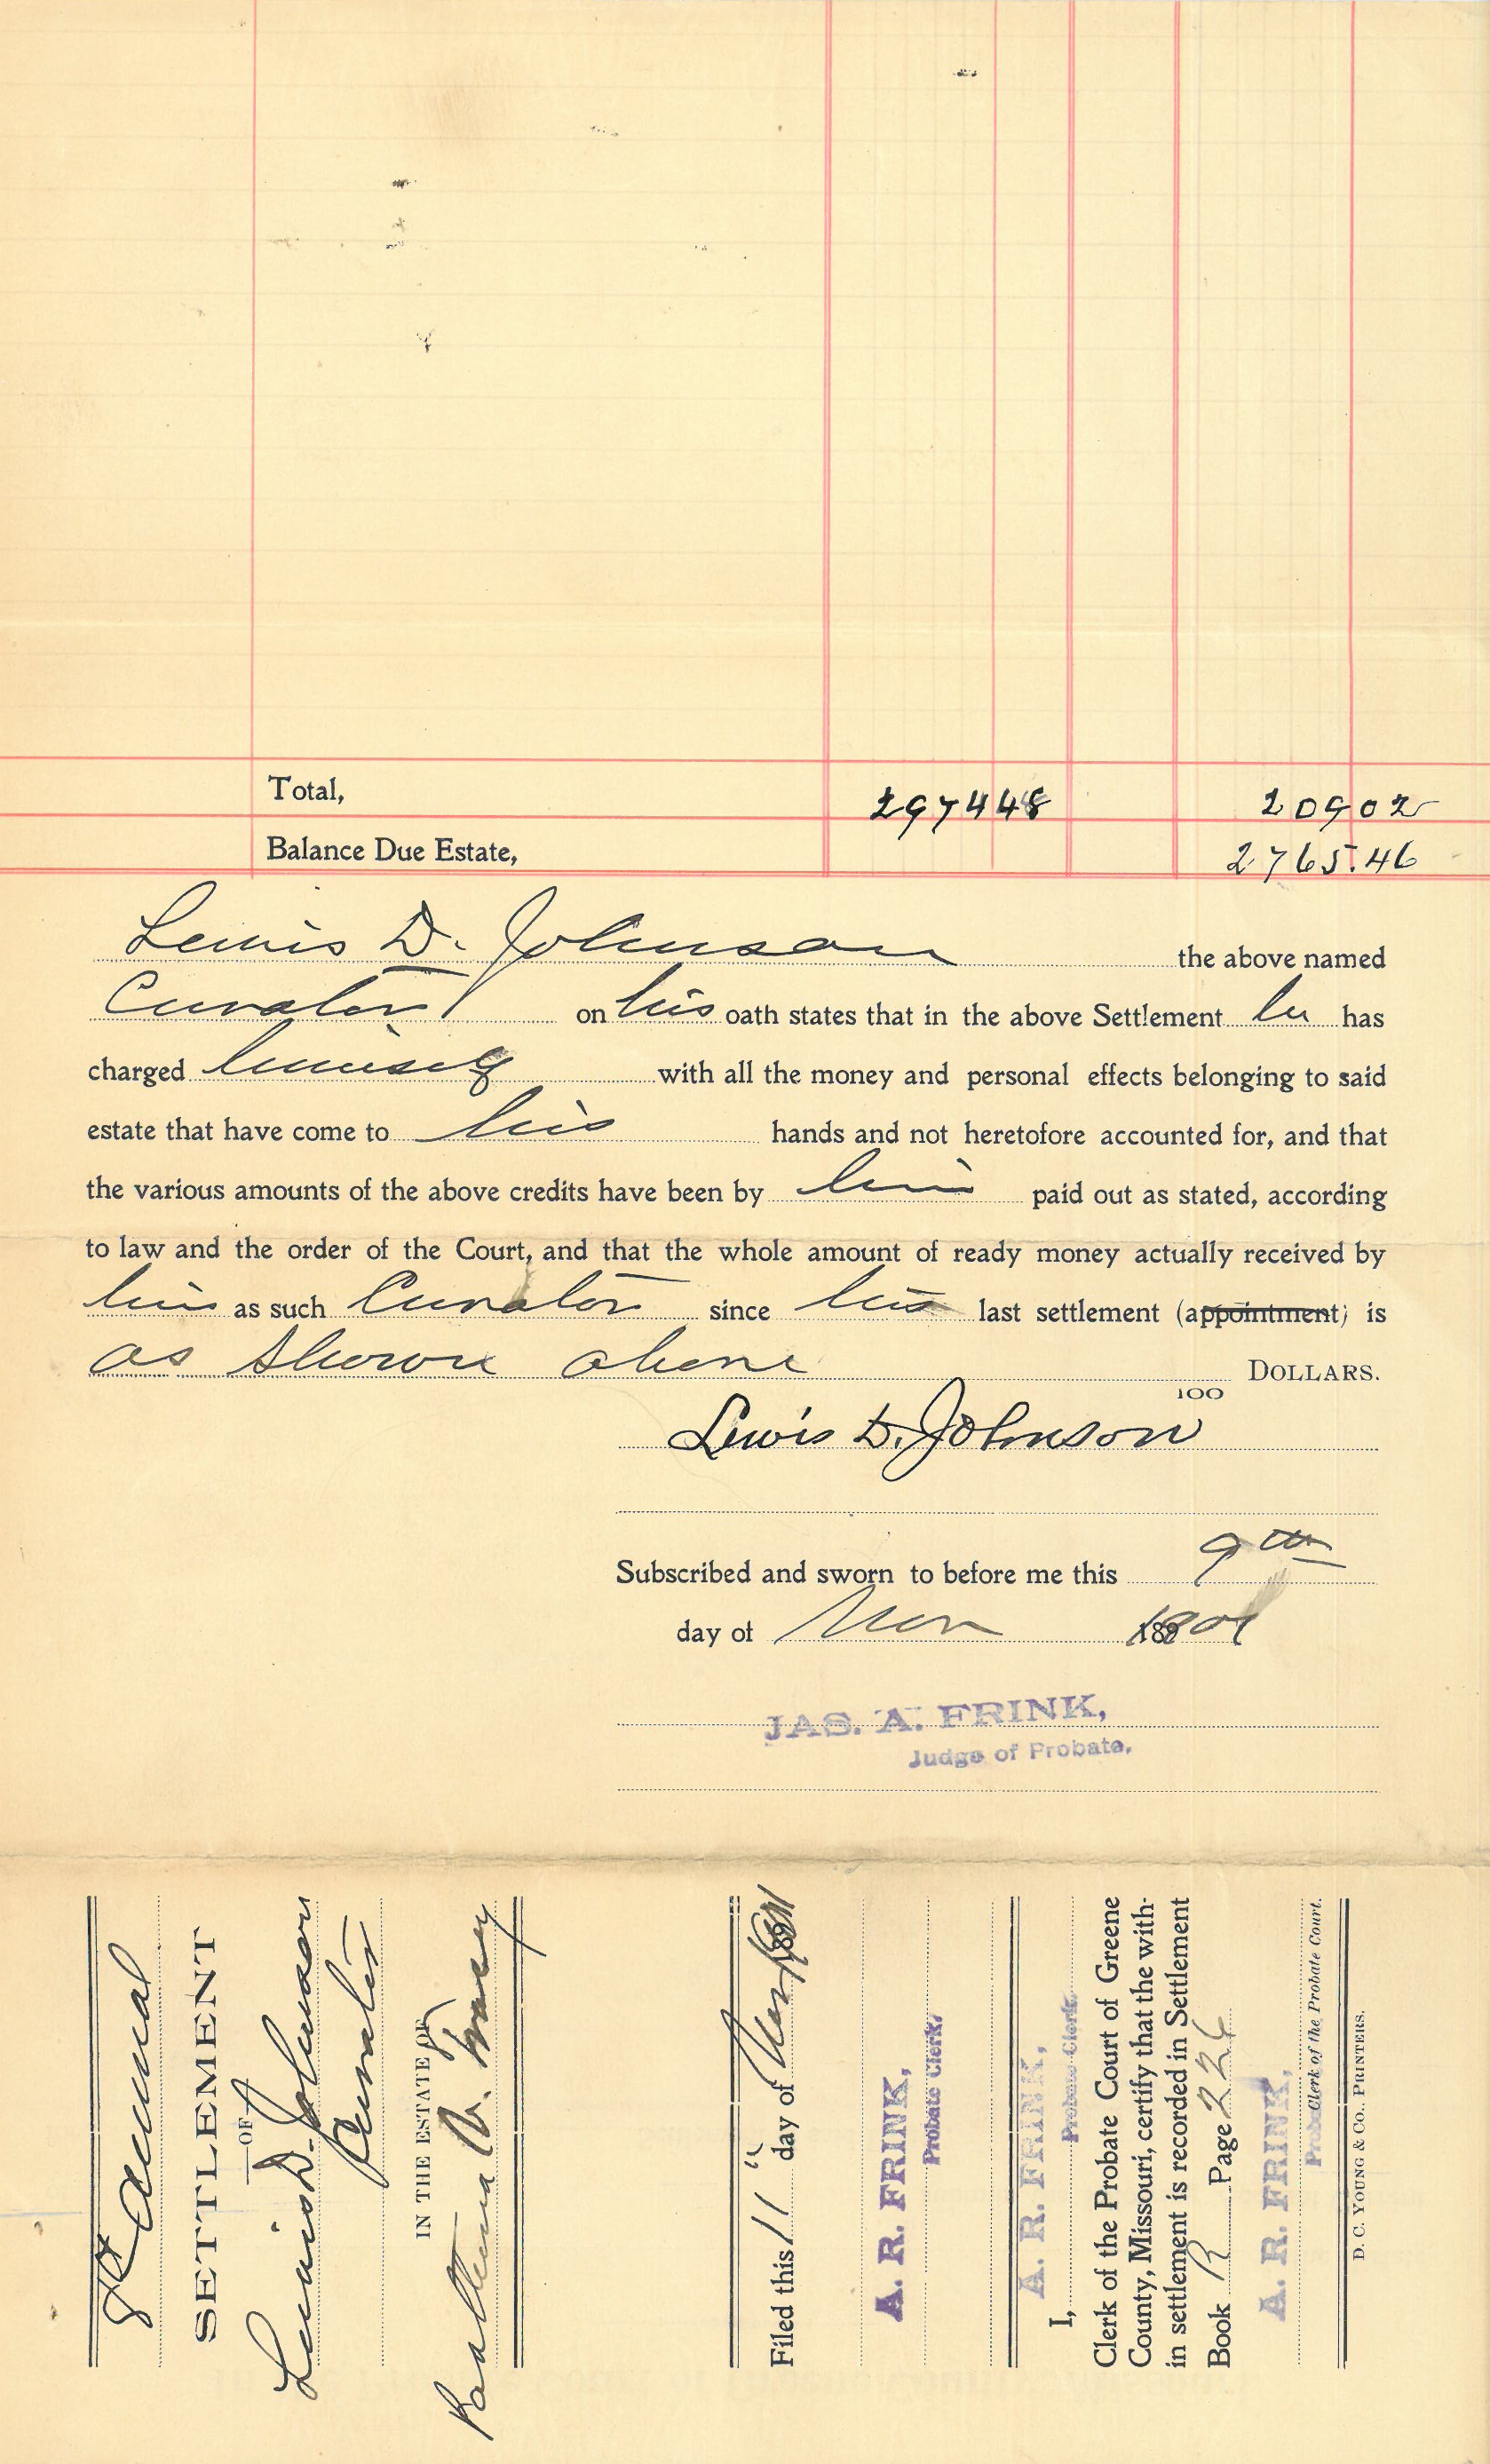 Total, 2974 48 209 02
Balance Due Estate, 2765.46
Lewis D. Johnson the above named
Curator on his oath states that in the above Settlement he has
charged himself with all the money and personal effects belonging to said
estate that have come to his hands and not heretofore accounted for, and that
the various amounts of the above credits have been by him paid out as stated, according
to law and the order of the Court, and that the whole amount of ready money actually received by
him as such Curator since his last settlement (appointment) is
as shown above DOLLARS.
100
Lewis D. Johnson
Subscribed and sworn to before me this 9th
day of Nov 1901
JAS. A. FRINK,
Judge of Probate.
8th Annual
SETTLEMENT
OF
Lewis D. Johnson
Curator
IN THE ESTATE OF
V.
Filed this 11" day of Nov 1901
A. R. FRINK,
Probate Clerk.
A. R. FRINK,
I, Probate Clerk.
Clerk of the Probate Court of Greene
County, Missouri, certify that the with-
in settlement is recorded in Settlement
Book R Page 226
A. R. FRINK,
Probate Clerk of the Probate Court.
D. C. YOUNG & CO., PRINTERS.